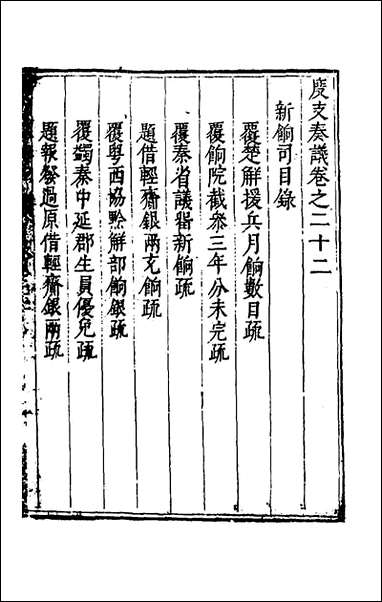 度支奏議卷之二十二
新餉司目錄
覆楚解援兵月餉數目疏
覆餉院截參三年分未完疏
覆秦省議留新餉疏
題借輕齎銀兩充餉疏
覆粵西協黔解部餉銀疏
覆蠲秦中延郡生員優免疏
題報發過原借輕齎銀兩疏